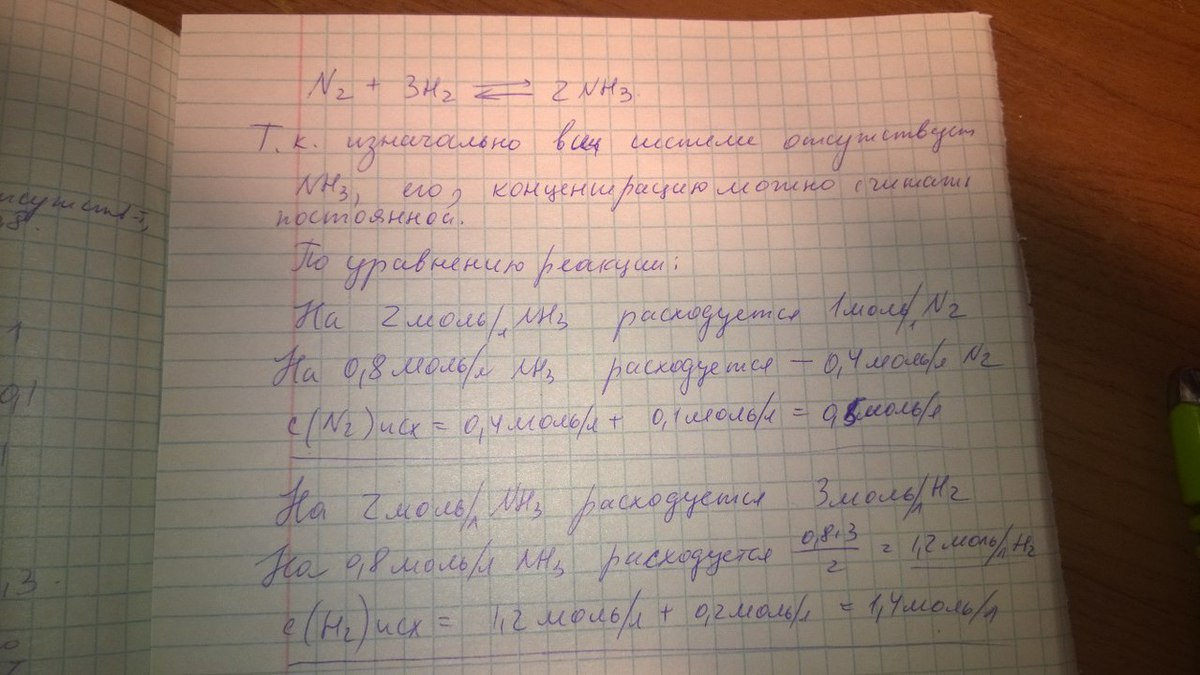 N2 + 3H2 ⇌ 2NH3
Т.к. изначально в системе отсутствует
NH3, его, концентрацию можно считать
постоянной.
По уравнению реакции:
На 2 моль/л NH3 расходуется 1 моль/л N2
На 0,8 моль/л NH3 расходуется — 0,4 моль/л N2
c(N2)исх = 0,4 моль/л + 0,1 моль/л = 0,5 моль/л
На 2 моль/л NH3 расходуется 3 моль/л H2
На 0,8 моль/л NH3 расходуется 0,8·3/2 = 1,2 моль/л H2
c(H2)исх = 1,2 моль/л + 0,2 моль/л = 1,4 моль/л
1
0,1
1
,3.